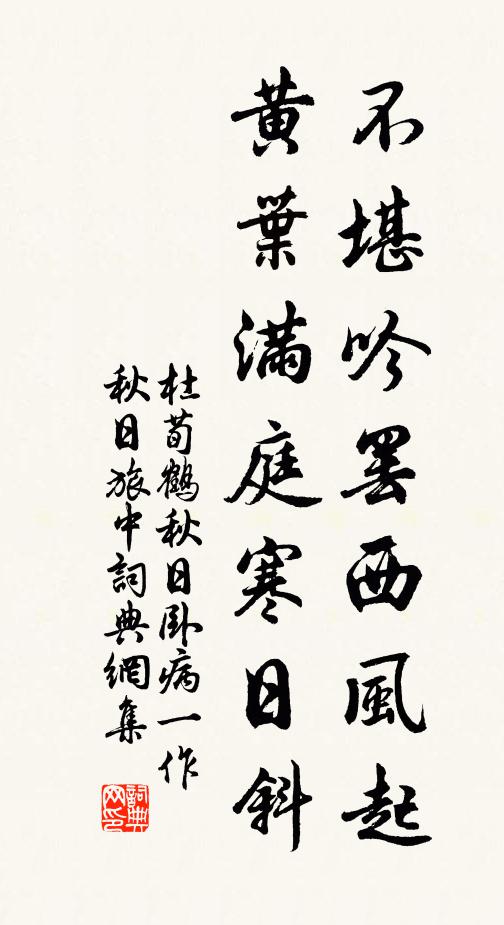 不堪吟罷西風起
黃葉滿庭寒日斜
杜荀鶴秋日臥病一作
秋日旅中詞典網集
詞典
网印